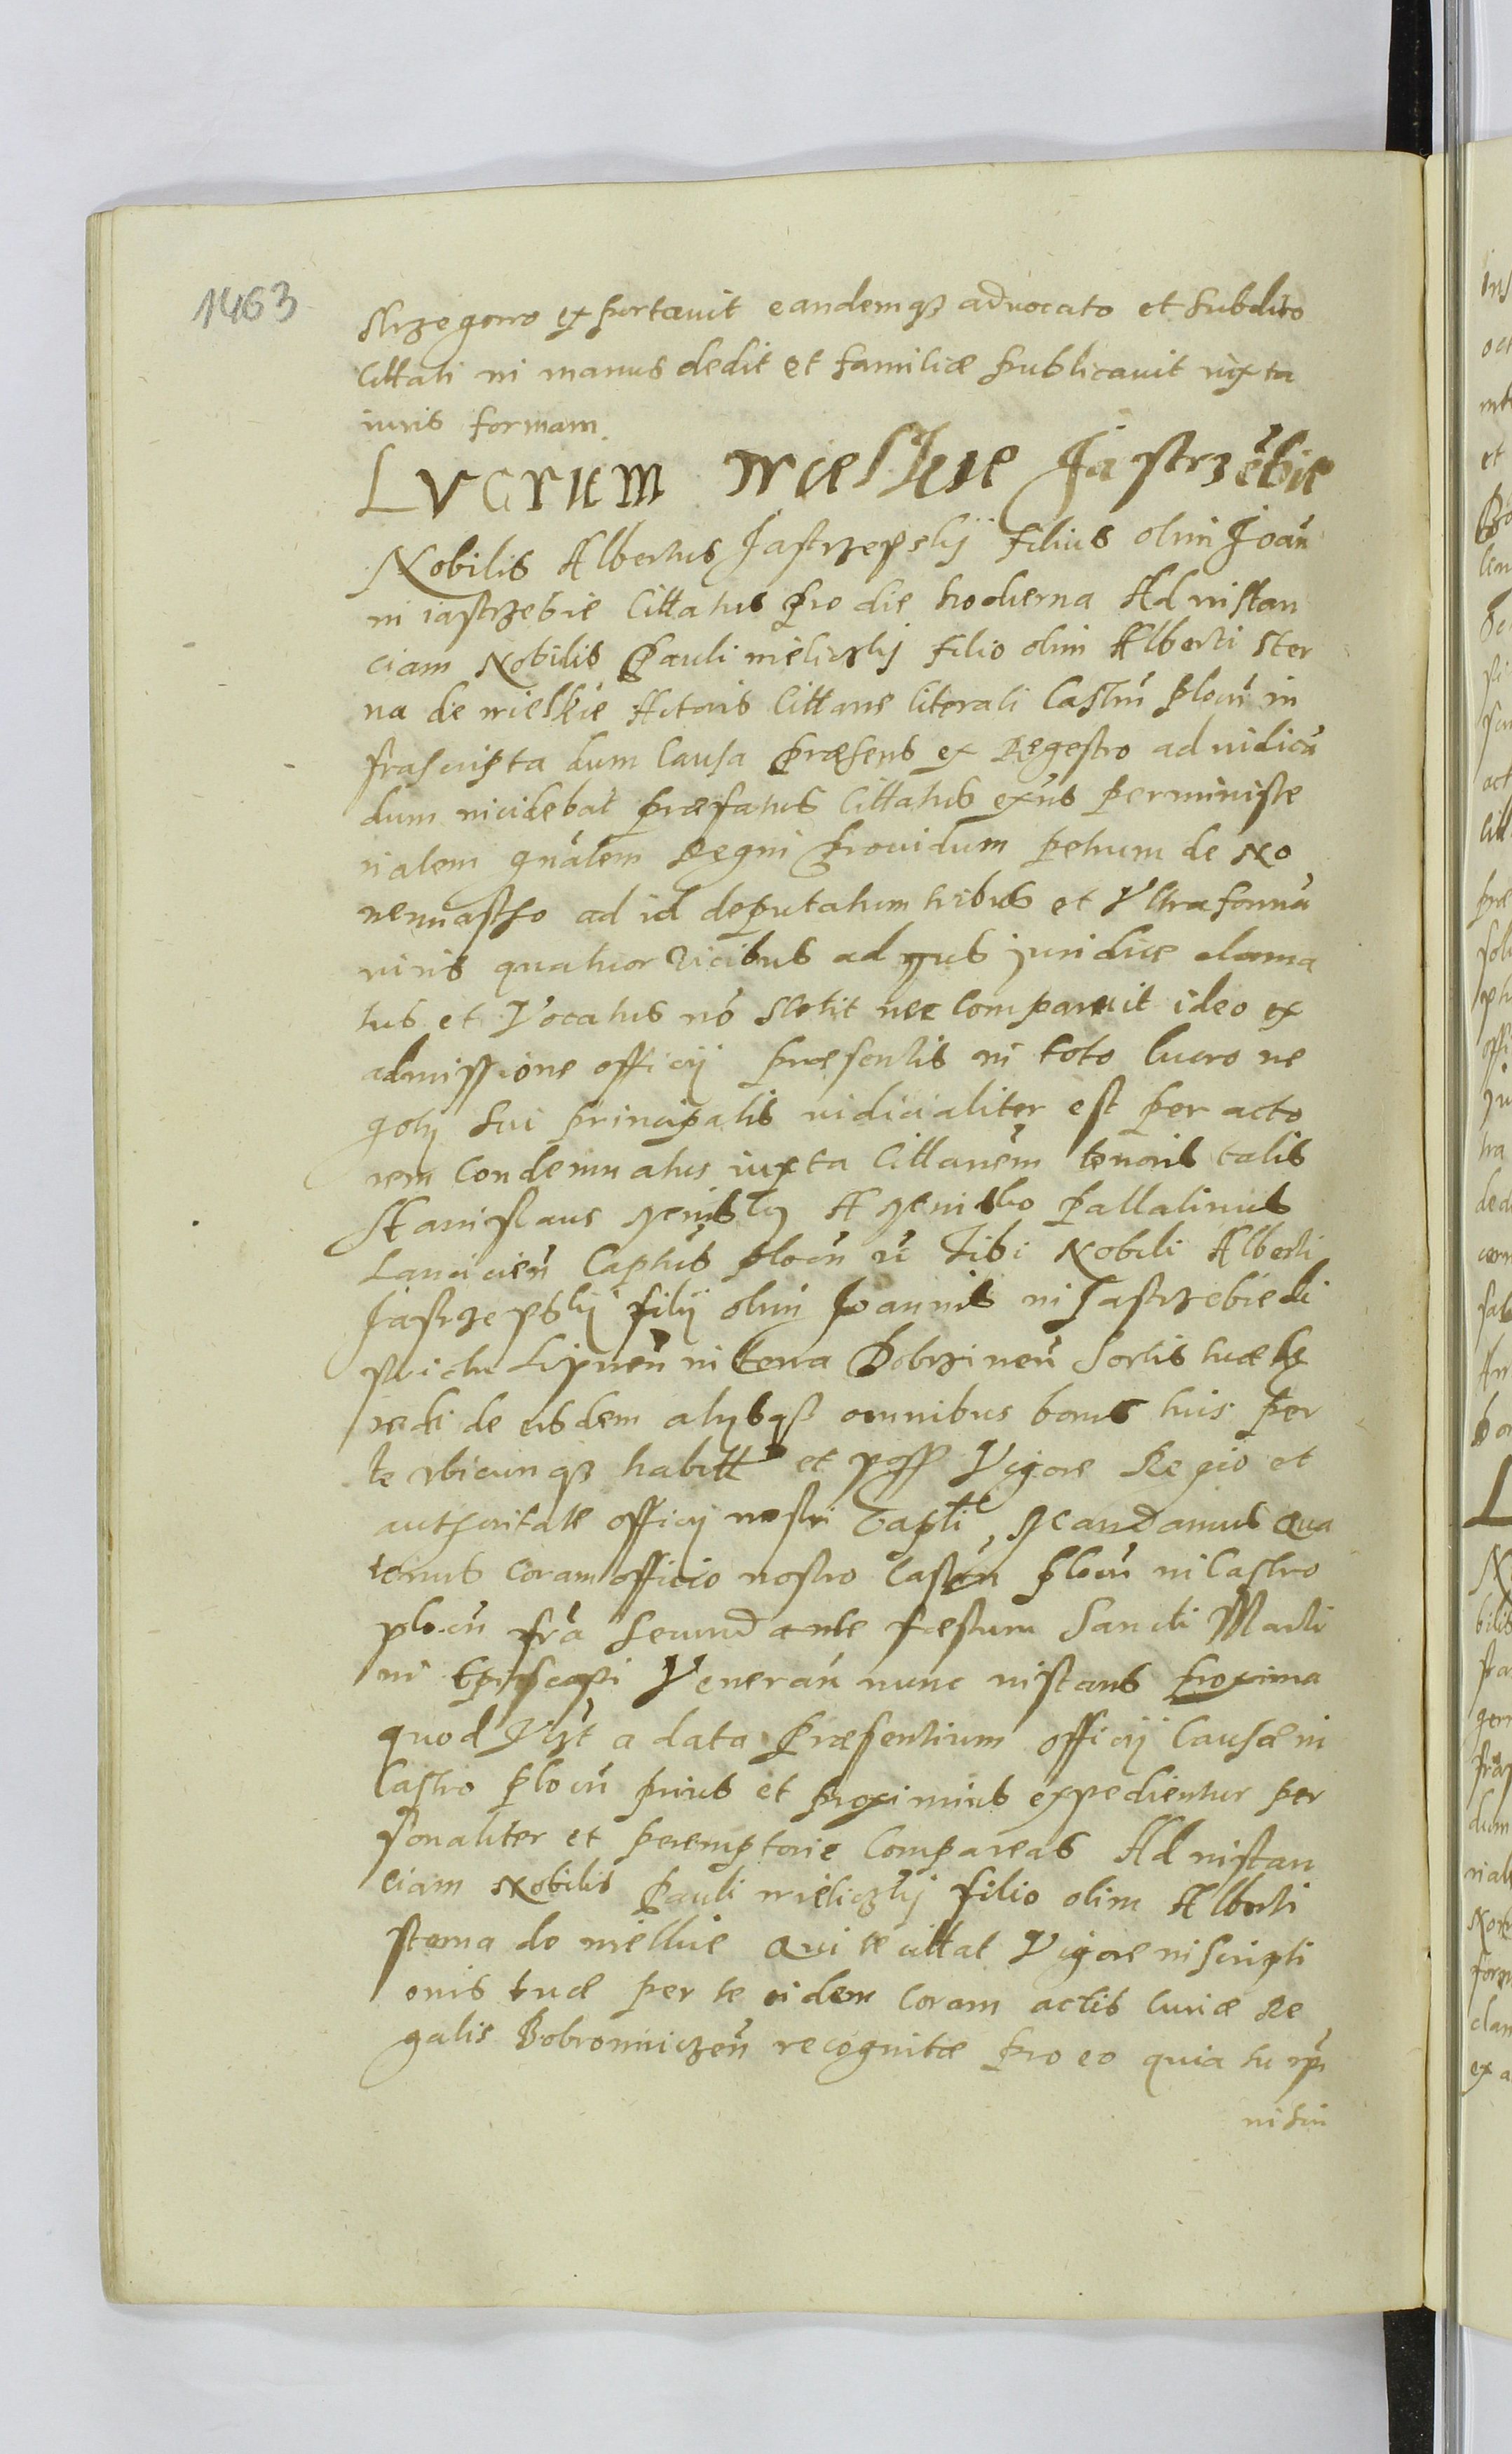 1463
strzegowo exportavit eandemqȝ advocato et subdito
Cittati in manus dedit et familiæ publicavit iuxta
iuris formam.
Lvcrum wielkie Jastrzēbie
Nobilis Albertus Jastrzepskij filius olim Joan̄
in iastrzebie Cittatus pro die hodierna Ad instan
ciam Nobilis Pauli wieliczkij filio olim Alberti Ster
na de wielkie Actoris Cittane literali Castrn̄ plocn̄ in
frascripta dum Causa præsens ex Regestro ad iudicā
dum incidebat præfatus Cittatus exn̄s per ministe
rialem gnālem Regni Providum petrum de No
wemiasto ad id deputatum tribus et Vltra formā
iuris quatuor vicibus ad jus juridice clama
tus et Vocatus nō stetit nec Comparuit ideo ex
admissione officij præsentis in toto lucro ne
gotij sui principalis iudicialiter est per acto
rem Condemnatus iuxta Cittanem tenoris talis
Stanislaus
Lancicien̄ Captus plocn̄ Tibi Nobili Alberti
Jastrzepskij filij olim Joannis in Jastrzebie di
strictu Lipnen̄ in terra Dobrzinen̄ Sortis tuæ hæ
redi de eisdem alijsqȝ omnibus bonis tuis per
te vbicunqȝ habitt et poss Vigore Regio et
authoritate officij nostri Captl Mandamus qua
tenus coram officio nostro Castrn̄ plocn̄ in Castro
plocn̄ frā secund ante fæstum Sancti Marti
ni Episcopi Veneran̄ nunc instans proxima
quod a data Præsentium officij Causæ in
Castro plocn̄ prius et proximius expedientur per
sonaliter et peremptorie Compareas Ad instan
ciam Nobilis Pauli wieliczkij filio olim Alberti
sterna de wielkie Qui te cittat Vigore inscripti
onis tuæ per te eidem Coram actis Curiæ Re
galis Bobrowniczen̄ recognitæ pro eo quia tu